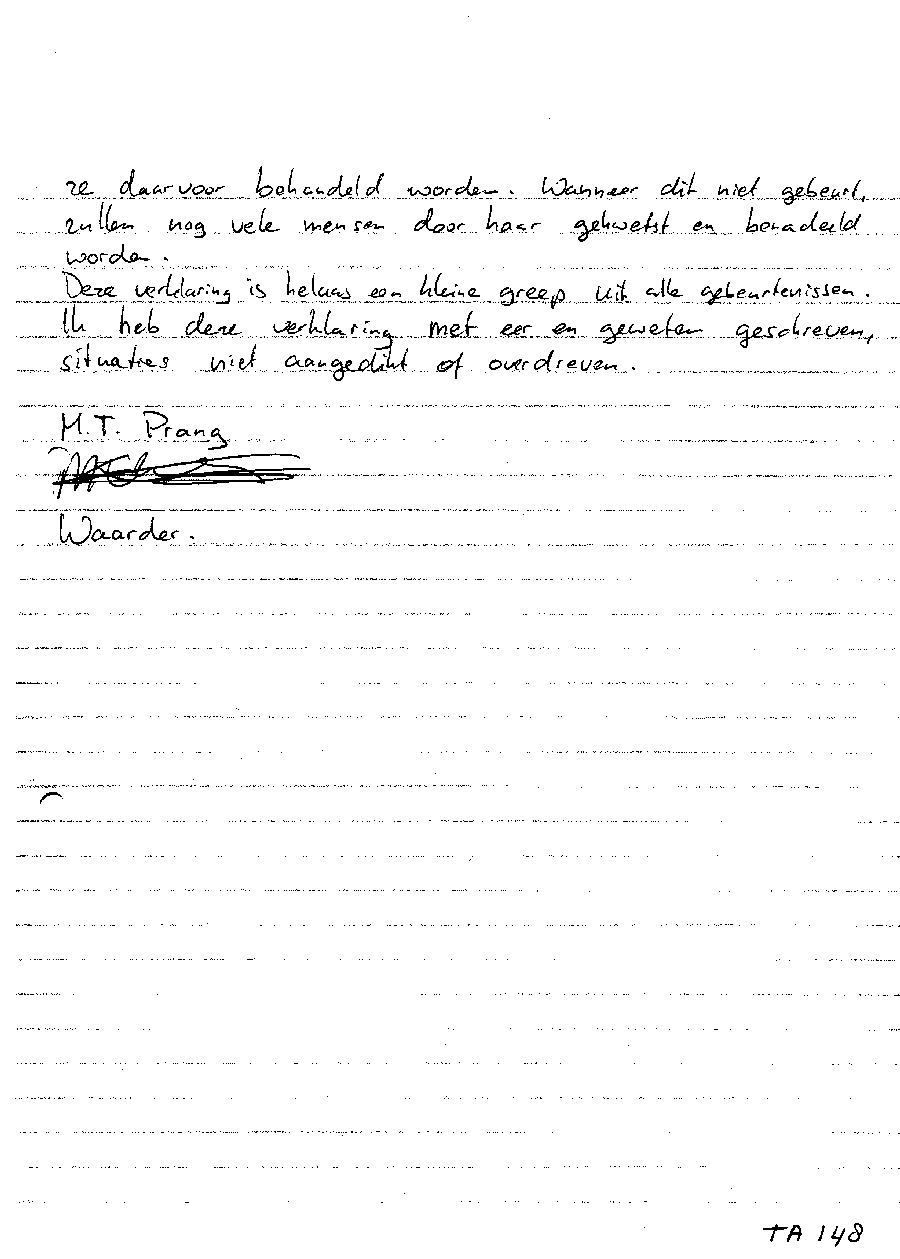 ze daarvoor behandeld worden. Wanneer dit niet gebeurt,
zullen nog vele mensen door haar gekwetst en benadeeld
worden.
Deze verklaring is helaas een kleine greep uit alle gebeurtenissen.
Ik heb deze verklaring met eer en geweten geschreven,
situaties niet aangedikt of overdreven.
M.T. Prang
Waarder.
TA 148